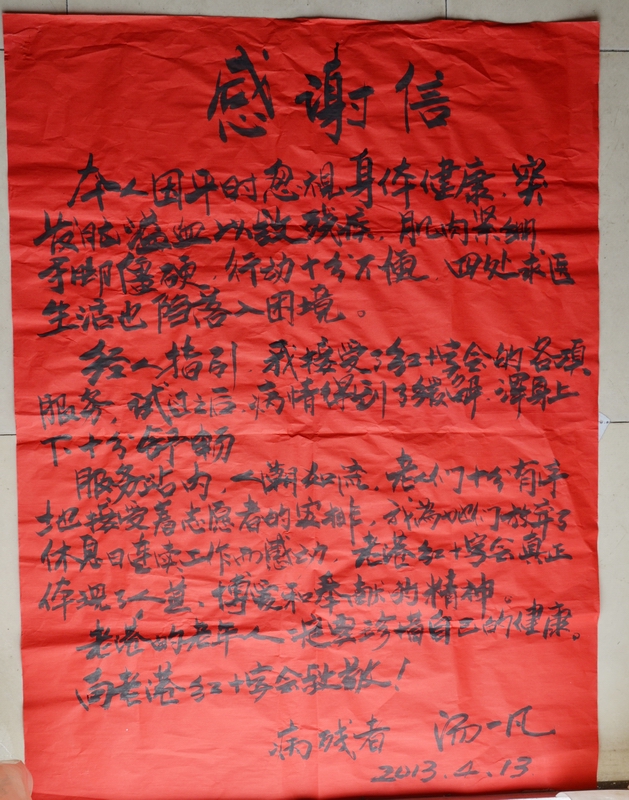 感谢信
本人因平时忽视身体健康，突
发脑溢血以致残疾，肌肉紧绷
手脚僵硬，行动十分不便，四处求医
生活也陷落入困境。
经人指引，我接受了红十字会的各项
服务，试过之后，病情得到了缓解，浑身上
下十分舒畅
服务站内，人潮如流，老人们十分有序
地接受着志愿者的安排，我為他们放弃了
休息日连续工作而感动，老港红十字会真正
体现了人道、博爱和奉献的精神。
老港的老年人 珍惜自己的健康。
向老港红十字会致敬！
病残者 汤一凡
2013.4.13